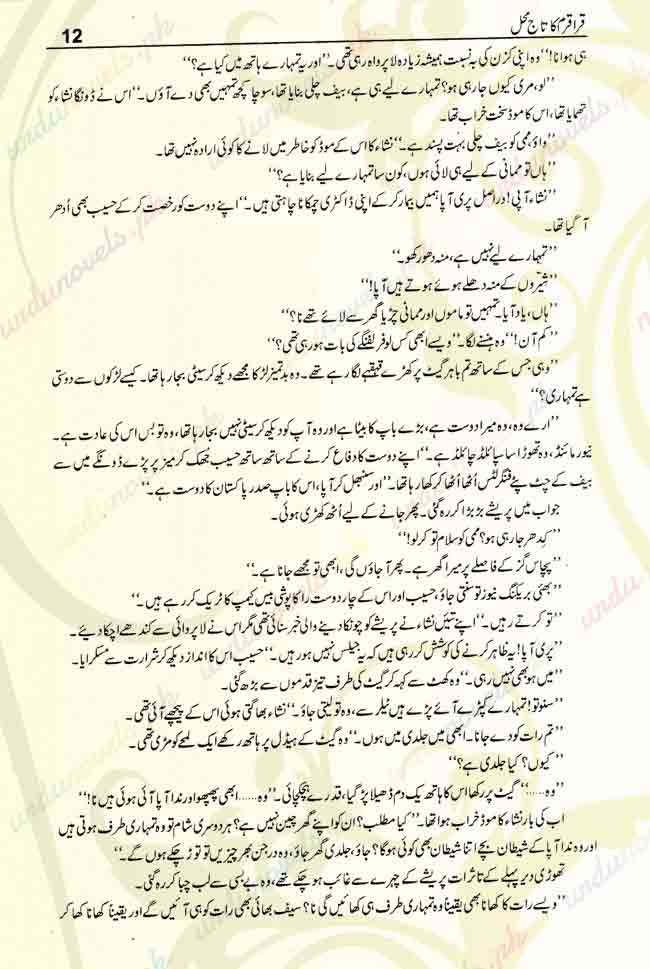 قراقرم کا تاج محل
12
ہی ہوانا!‘‘ وہ اپنی کزن کی بہ نسبت ہمیشہ زیادہ لا پرواہ رہی تھی۔ ’’اور یہ تمہارے ہاتھ میں کیا ہے؟‘‘
’’لو، مری کیوں جا رہی ہو؟ تمہارے لیے ہی ہے، بیف چلی بنایا تھا، سوچا کچھ تمہیں بھی دے آؤں۔‘‘ اس نے ڈونگا نشاء کو
تھمایا تھا، اس کا موڈ سخت خراب تھا۔
’’واؤ، ممی کو بیف چلی بہت پسند ہے۔‘‘ نشاء کا اس کے موڈ کو خاطر میں لانے کا کوئی ارادہ نہیں تھا۔
’’ہاں تو ممانی کے لیے ہی لائی ہوں، کون سا تمہارے لیے بنایا ہے؟‘‘
’’نشاء آپی! دراصل پری آپا ہمیں بیمار کر کے اپنی ڈاکٹری چمکانا چاہتی ہیں۔‘‘ اپنے دوست کو رخصت کر کے حسیب بھی اُدھر
آ گیا تھا۔
’’تمہارے لیے نہیں ہے، منہ دھو رکھو۔‘‘
’’شیروں کے منہ دھلے ہوئے ہوتے ہیں آپا!‘‘
’’ہاں، یاد آیا۔ تمہیں تو ماموں اور ممانی چڑیا گھر سے لائے تھے نا؟‘‘
’’کم آن!‘‘ وہ ہنسنے لگا۔ ’’ویسے ابھی کس لوفر لفنگے کی بات ہو رہی تھی؟‘‘
’’وہی جس کے ساتھ تم باہر گیٹ پر کھڑے قہقہے لگا رہے تھے۔ وہ بدتمیز لڑکا مجھے دیکھ کر سیٹی بجا رہا تھا۔ کیسے لڑکوں سے دوستی
ہے تمہاری؟‘‘
’’ارے وہ، وہ میرا دوست ہے، بڑے باپ کا بیٹا ہے اور وہ آپ کو دیکھ کر سیٹی نہیں بجا رہا تھا، وہ تو بس اس کی عادت ہے۔
نیور مائنڈ، وہ تھوڑا سا سپائلڈ چائلڈ ہے۔‘‘ اپنے دوست کا دفاع کرنے کے ساتھ ساتھ حسیب جھک کر میز پر پڑے ڈونگے میں سے
بیف کے چٹ پٹے فنگر لٹس اُٹھا اُٹھا کر کھا رہا تھا۔ ’’اور سنبھل کر آپا، اس کا باپ صدر پاکستان کا دوست ہے۔‘‘
جواب میں پریشے بڑبڑا کر رہ گئی۔ پھر جانے کے لیے اُٹھ کھڑی ہوئی۔
’’کدھر جا رہی ہو؟ ممی کو سلام تو کر لو!‘‘
’’پچاس گز کے فاصلے پر میرا گھر ہے۔ پھر آ جاؤں گی، ابھی تو مجھے جانا ہے۔‘‘
’’بھئی بریکنگ نیوز تو سنتی جاؤ، حسیب اور اس کے چار دوست راکا پوشی بیس کیمپ کا ٹریک کر رہے ہیں۔‘‘
’’تو کرتے رہیں۔‘‘ اپنے تئیں نشاء نے پریشے کو چونکا دینے والی خبر سنائی تھی مگر اس نے لا پروائی سے کندھے اچکا دیے۔
’’پری آپا! یہ ظاہر کرنے کی کوشش کر رہی ہیں کہ یہ جیلس نہیں ہو رہیں۔‘‘ حسیب اس کا انداز دیکھ کر شرارت سے مسکرایا۔
’’میں ہو بھی نہیں رہی۔‘‘ وہ کھٹ سے کہہ کر گیٹ کی طرف تیز قدموں سے بڑھ گئی۔
’’سنو تو! تمہارے کپڑے آئے پڑے ہیں ٹیلر سے، وہ تو لیتی جاؤ۔‘‘ نشاء بھاگتی ہوئی اس کے پیچھے آئی تھی۔
’’تم رات کو دے جانا۔ ابھی میں جلدی میں ہوں۔‘‘ وہ گیٹ کے ہینڈل پر ہاتھ رکھے ایک لمحے کو مڑی تھی۔
’’کیوں؟ کیا جلدی ہے؟‘‘
’’وہ......‘‘ گیٹ پر رکھا اس کا ہاتھ یک دم ڈھیلا پڑ گیا، قدرے ہچکچائی۔ ’’وہ...... ابھی پھپھو اور ندا آپا آئی ہوئی ہیں نا!‘‘
اب کی بار نشاء کا موڈ خراب ہوا تھا۔ ’’کیا مطلب؟ ان کو اپنے گھر چین نہیں ہے؟ ہر دوسری شام تو وہ تمہاری طرف ہوتی ہیں
اور وہ ندا آپا کے شیطان بچے، اتنا شیطان بھی کوئی ہوگا؟ جاؤ، جلدی گھر جاؤ، وہ درجن بھر چیزیں تو توڑ چکے ہوں گے۔‘‘
تھوڑی دیر پہلے کے تاثرات پریشے کے چہرے سے غائب ہو چکے تھے، وہ بے بسی سے لب چبا کر رہ گئی۔
’’ویسے رات کا کھانا بھی یقیناً وہ تمہاری طرف ہی کھائیں گی نا؟ سیف بھائی بھی رات کو ہی آئیں گے اور یقیناً کھانا کھا کر
urdunovels.pk